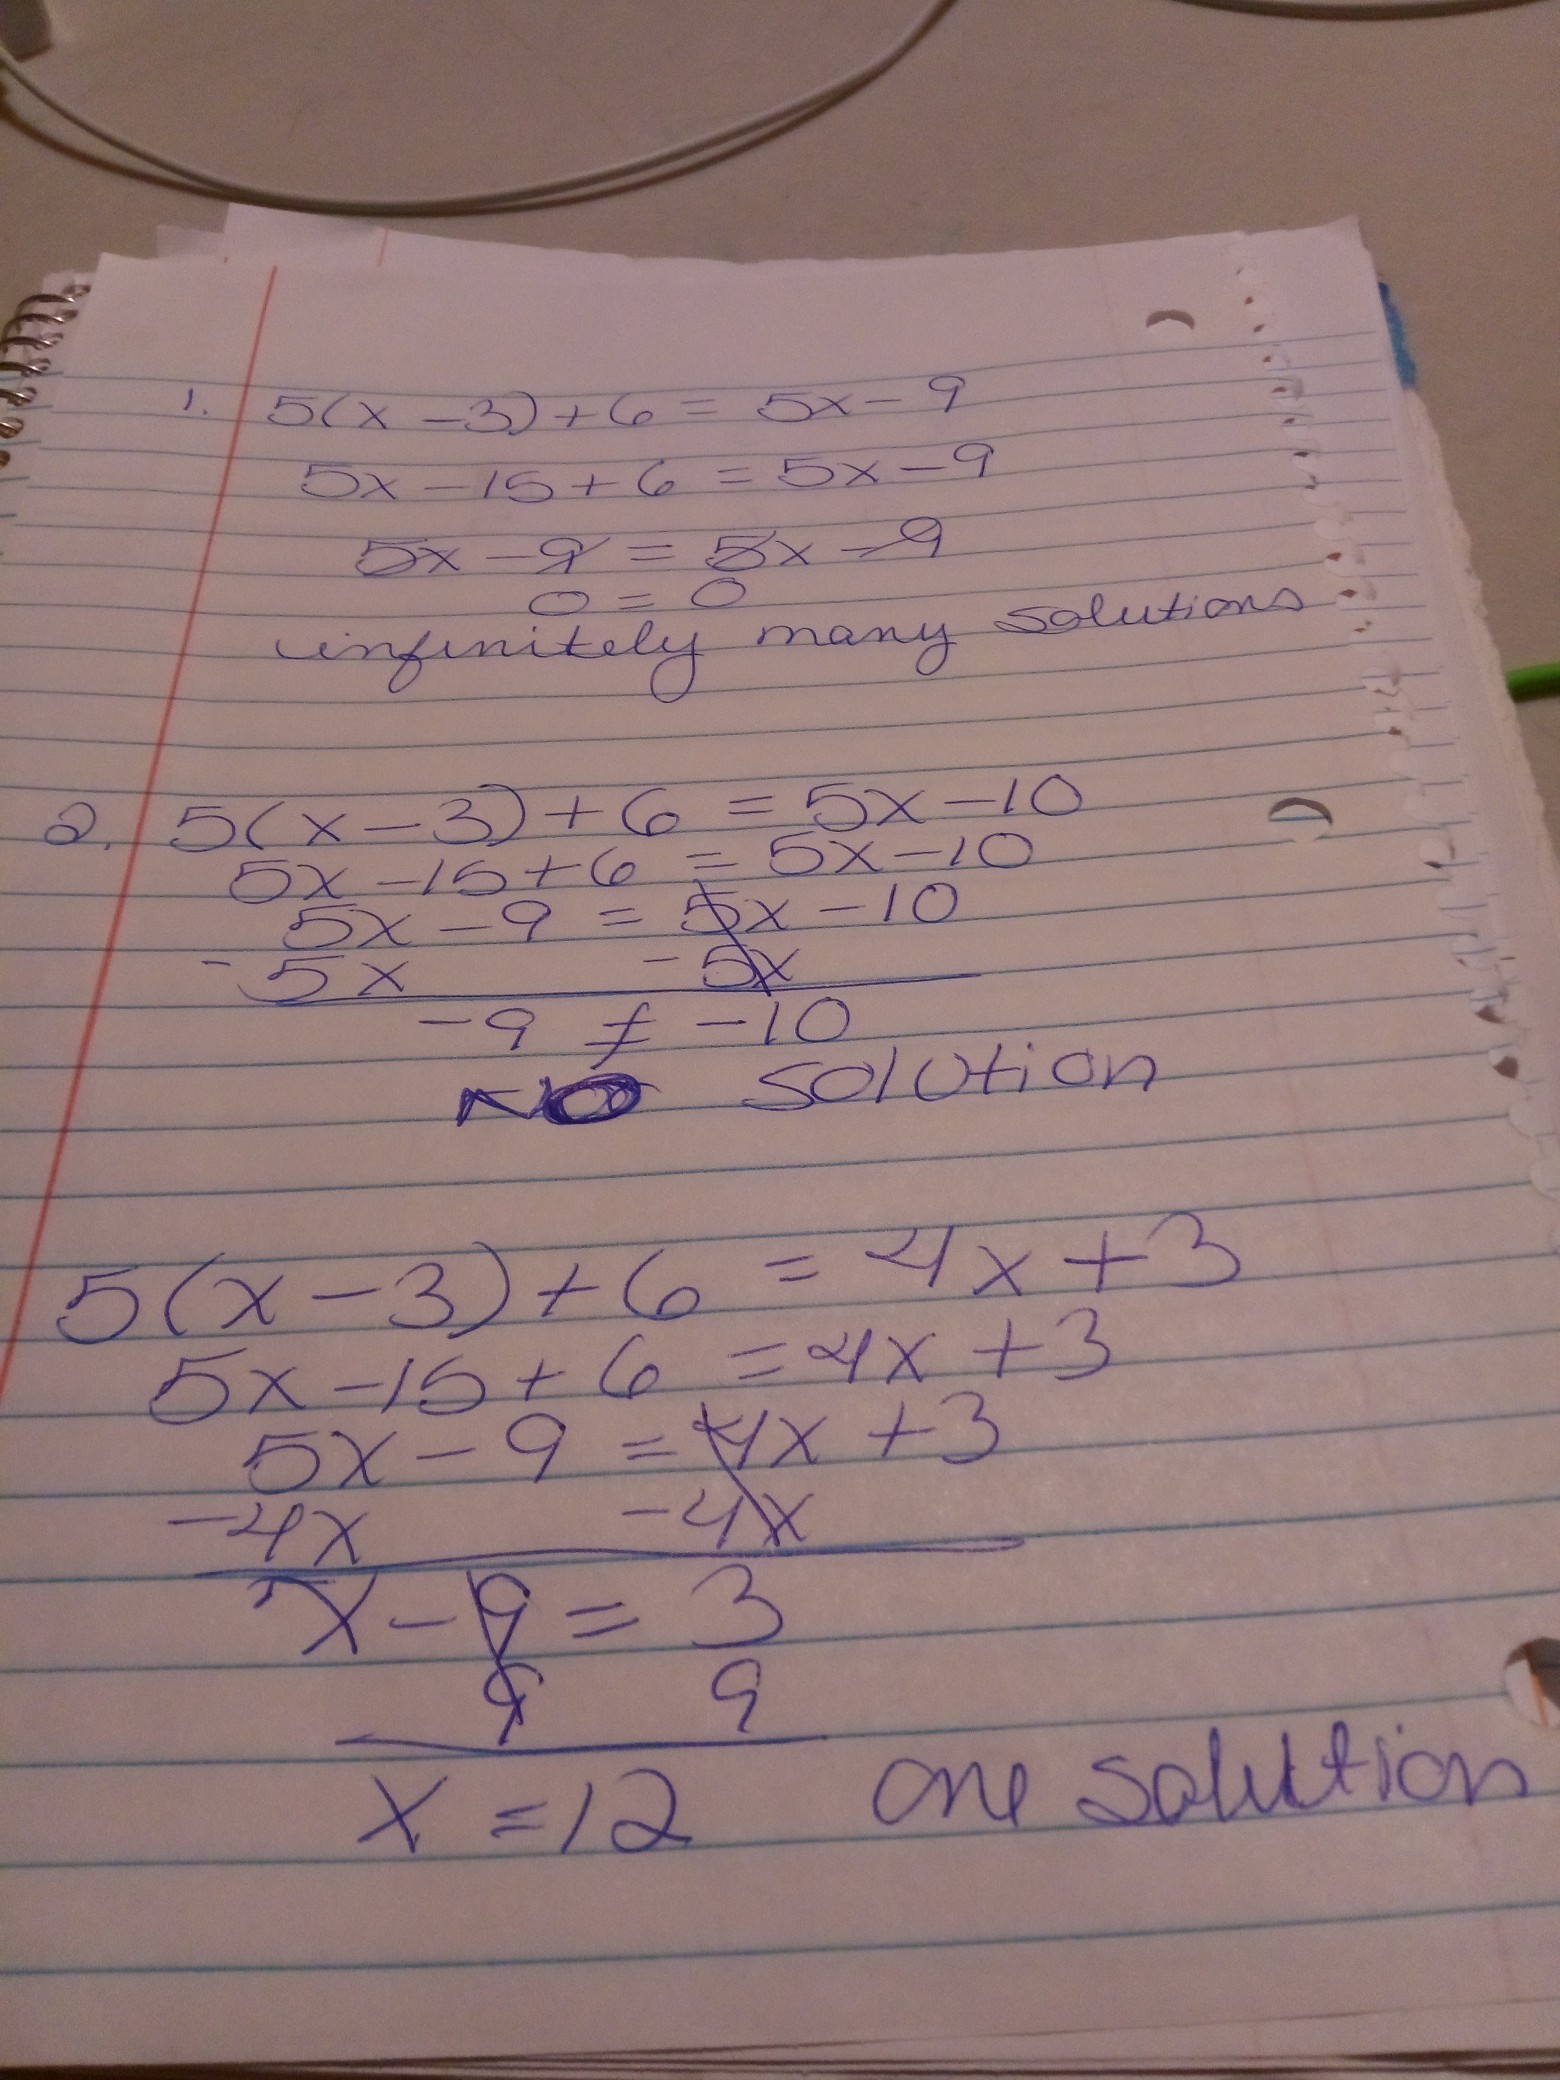 1. 5(x - 3) + 6 = 5x - 9
5x - 15 + 6 = 5x - 9
5x - 9 = 5x - 9
0 = 0
infinitely many solutions
2. 5(x - 3) + 6 = 5x - 10
5x - 15 + 6 = 5x - 10
5x - 9 = 5x - 10
- 5x - 5x
-9 ≠ -10
No solution
5(x - 3) + 6 = 4x + 3
5x - 15 + 6 = 4x + 3
5x - 9 = 4x + 3
-4x -4x
x - 9 = 3
9 9
x = 12 one solution